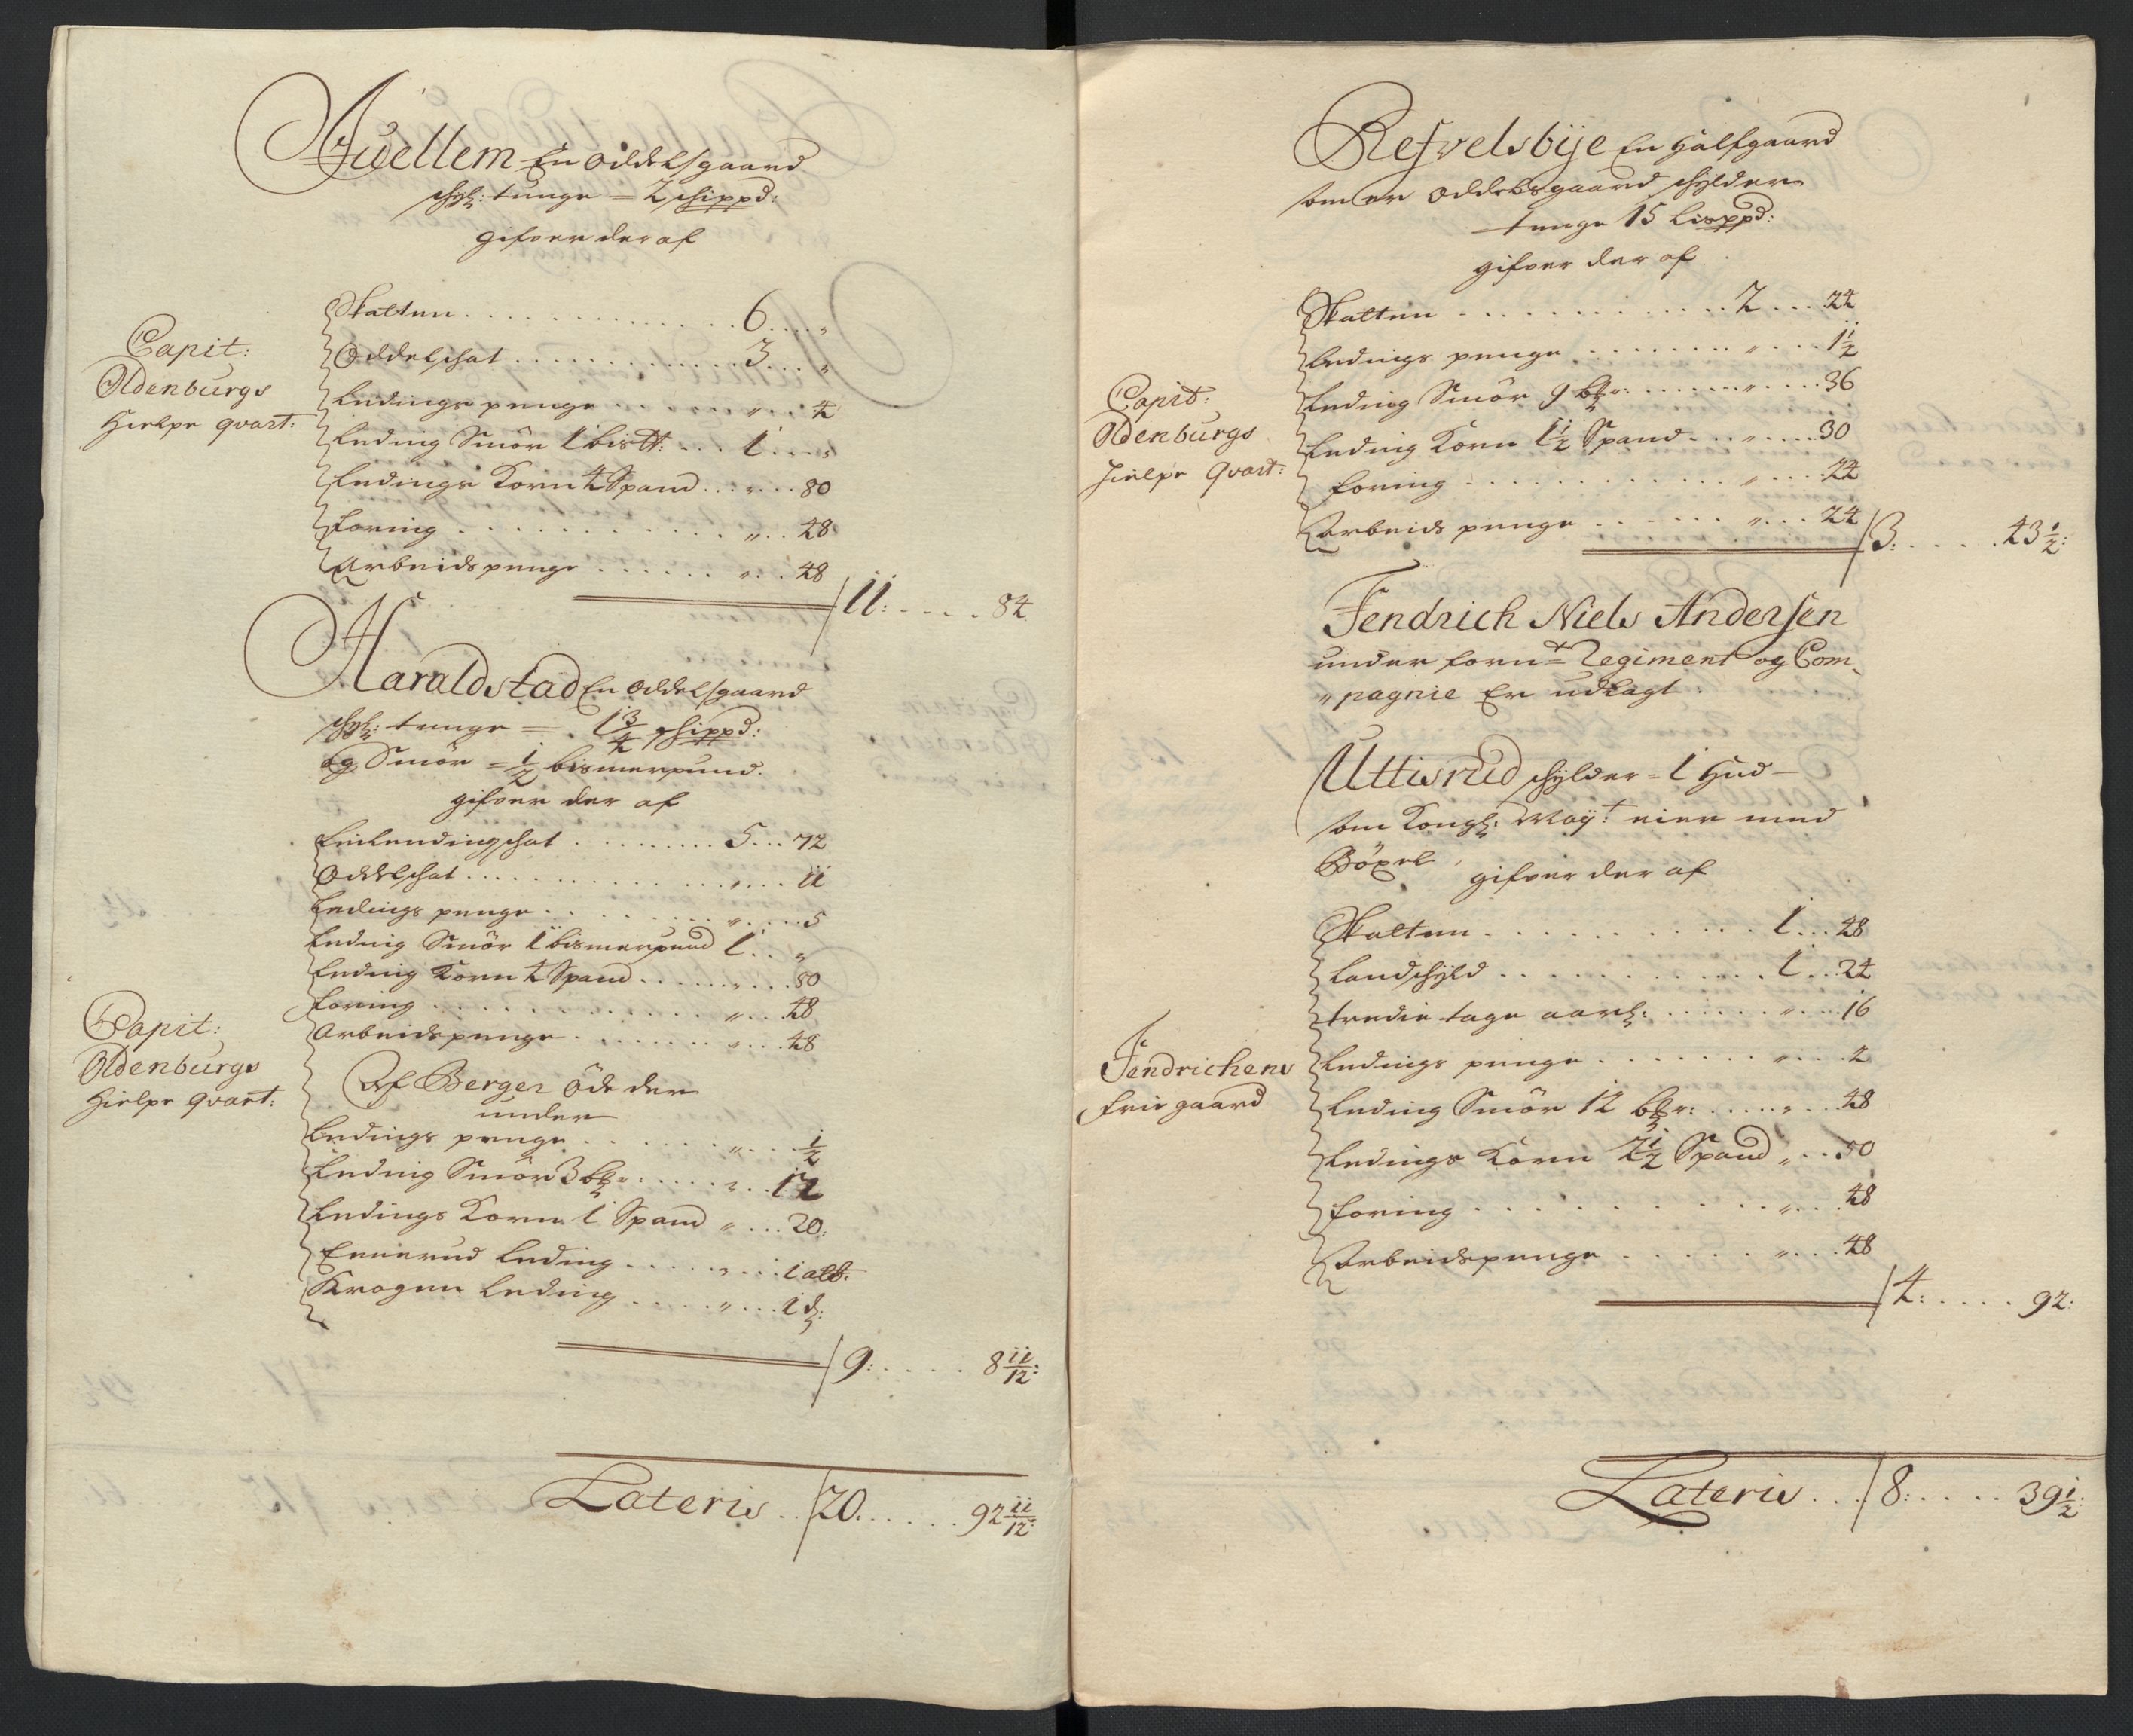 Auellem En Oddelsgaard
schyl: tunge = 2 schippd:
gifver der af
Capit:
Oldenburgs
Hielpe qvart:
Skatten . . . . 6 . . . "
Oddelschat . . . . 3 . . . "
Ledings penge . . . . " . . . 4
Leding Smör 1 bistt: . . . 1 . . . "
Ledings Korn 4 Spand . . . " . . . 80
foring . . . . " . . . 48
Arbeidspenge . . . . " . . . 48
11: . . . . 84
Haraldstad En Oddelsgaard
schyl: tunge = 1 3/4 schippd:
og Smör = 1/2 bismerpund.
gifver der af
Capit:
Oldenburgs
Hielpe qvart:
Leilendingschat . . . . 5 . . . 72
Oddelschat . . . . " . . . 11
Ledings penge . . . . " . . . 5
Leding Smör 1 bismerpund 1 . . "
Leding Korn 4 Spand . . . . " . . . 80
foring . . . . " . . . 48
Arbeidspenge . . . . " . . . 48
Af Berger öde der
under
Ledings penge . . . . " . . . 1/2
Leding Smör 3 bk: . . . . " . . . 12
Ledings Korn 1 Spand " . . . 20:
Ennerud Leding . . . . " . . . 1 alb.
Krogen Leding . . . . " . . . 1 d:
9: . . . . 8 11/12:
Lateris . . 20. . . . . 92 11/12:
Refvelsbÿe En Halfgaard
som er Oddelsgaard schylder
tunge 15 Lisppd:
gifver der af
Capit:
Oldenburgs
Hielpe Qvart:
Skatten . . . . 2 . . . 24
Ledings penge . . . . " . . . 1 1/2
Leding Smör 9 bk: . . . . " . . . 36
Leding Korn 1 1/2 Spand . . . " . . . 30
foring . . . . " . . . 24
Arbeids penge . . . . " . . . 24
3: . . . . 43 1/2:
Fendrich Niels Andersen
under forne Regiment og Com-
"pagnie Er udlagt.
Uttisrud schylder = 1 Hud
som Kongl: Maÿt: eier med
Böxel, gifver der af
Fendrichens
frie gaard
Skatten . . . . 1 . . . 48
Landschyld . . . . 1 . . . 24
tredie tage aarl: . . . . " . . . 16
Ledings penge . . . . " . . . 2
Leding Smör 12 bk: . . . . " . . . 48
Ledings Korn 2 1/2 Spand " . . . 50
foring . . . . " . . . 48
Arbeidspenge . . . . " . . . 48
4: . . . . 92:
Lateris . . . 8: . . . . 39 1/2: